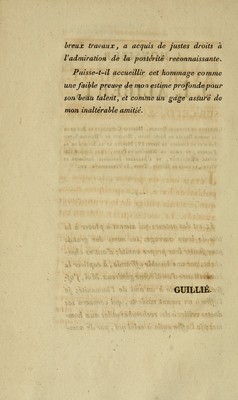 breux travaux, a acquis de justes droits à
l'admiration de la postérité reconnaissante.
Puisse-t-il accueillir cet hommage comme
une faible preuve de mon estime profonde pour
son beau talent, et comme un gage assuré de
mon inaltérable amitié.
GUILLIÉ.